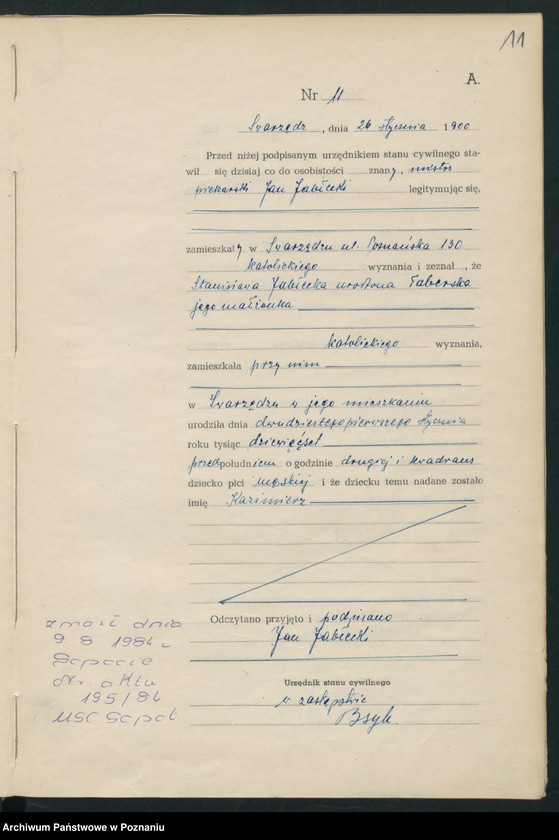 11
A.
Nr 11
Swarzędz, dnia 26 stycznia 1900
Przed niżej podpisanym urzędnikiem stanu cywilnego sta-
wił się dzisiaj co do osobistości znany, mistrz
piekarski Jan Jabłecki legitymując się,
zamieszkały w Swarzędzu ul. Poznańska 130
katolickiego wyznania i zeznał, że
Stanisława Jabłecka urodzona Taberska
jego małżonka
katolickiego wyznania,
zamieszkała przy nim
w Swarzędzu w jego mieszkaniu
urodziła dnia dwudziestegopierwszego stycznia
roku tysiąc dziewięćset
przedpołudniem o godzinie drugiej i kwadrans
dziecko płci męskiej i że dziecku temu nadane zostało
imię Kazimierz
Odczytano przyjęto i podpisano
Jan Jabłecki
Urzędnik stanu cywilnego
w zastępstwie
zmarł dnia
9 8 1984 w
Sopocie
Nr. aktu
195/84
USC Sopot
Archiwum Państwowe w Poznaniu